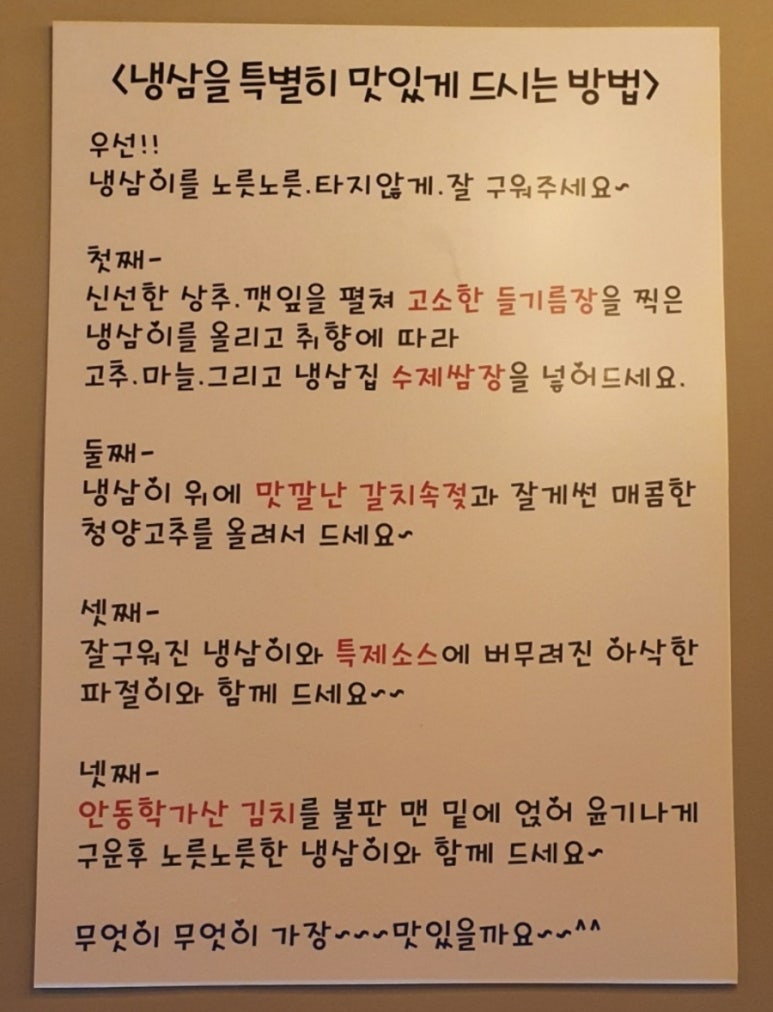 <냉삼을 특별히 맛있게 드시는 방법>
우선!!
냉삼이를 노릇노릇.타지않게.잘 구워주세요~
첫째-
신선한 상추.깻잎을 펼쳐 고소한 들기름장을 찍은
냉삼이를 올리고 취향에 따라
고추.마늘.그리고 냉삼집 수제쌈장을 넣어드세요.
둘째-
냉삼이 위에 맛깔난 갈치속젖과 잘게썬 매콤한
청양고추를 올려서 드세요~
셋째-
잘구워진 냉삼이와 특제소스에 버무려진 아삭한
파절이와 함께 드세요~~
넷째-
안동학가산 김치를 불판 맨 밑에 얹어 윤기나게
구운후 노릇노릇한 냉삼이와 함께 드세요~
무엇이 무엇이 가장~~~맛있을까요~~^^